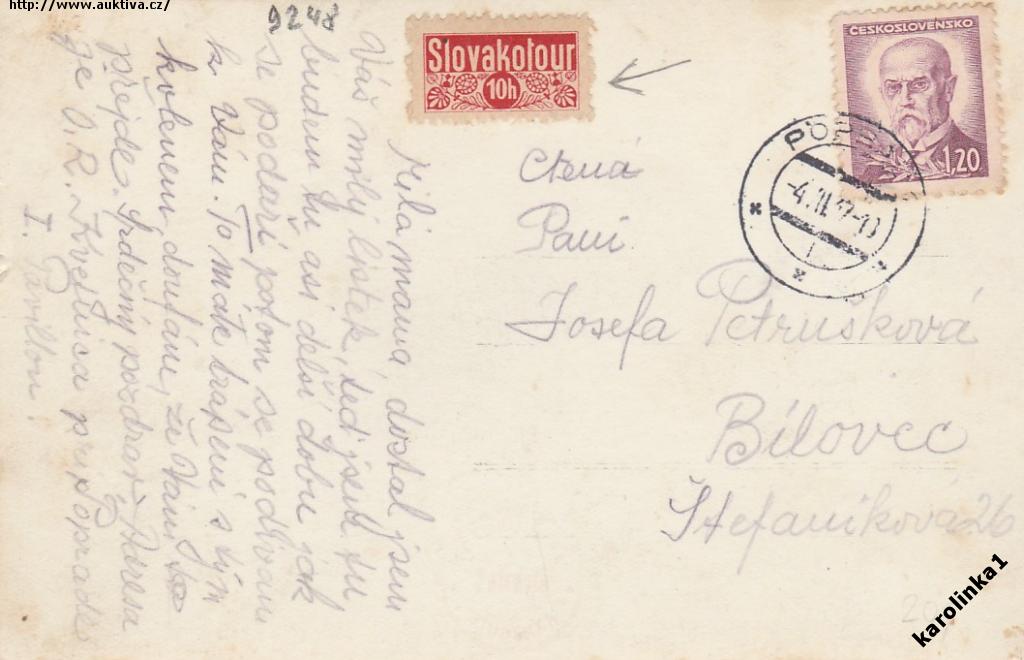 http://www.auktiva.cz/
9248
Slovakotour
10h
ČESKOSLOVENSKO
1,20
-4.II.47-10
Milá mama, dostal jsem
Váš milý lístek, teď jsem tu
budem tu asi delší dobu jak
se podaří potom se podívam
k Vám. To máte trápení s tým
kolenem, doufám, že Vám
přejde. Srdečný pozdrav. Adresa
je O.R. Kvetnica pri Poprade
I. Pavillon.
Ctená
Paní
Josefa Petrušková
Bílovec
Štefaníková 26
karolinka1